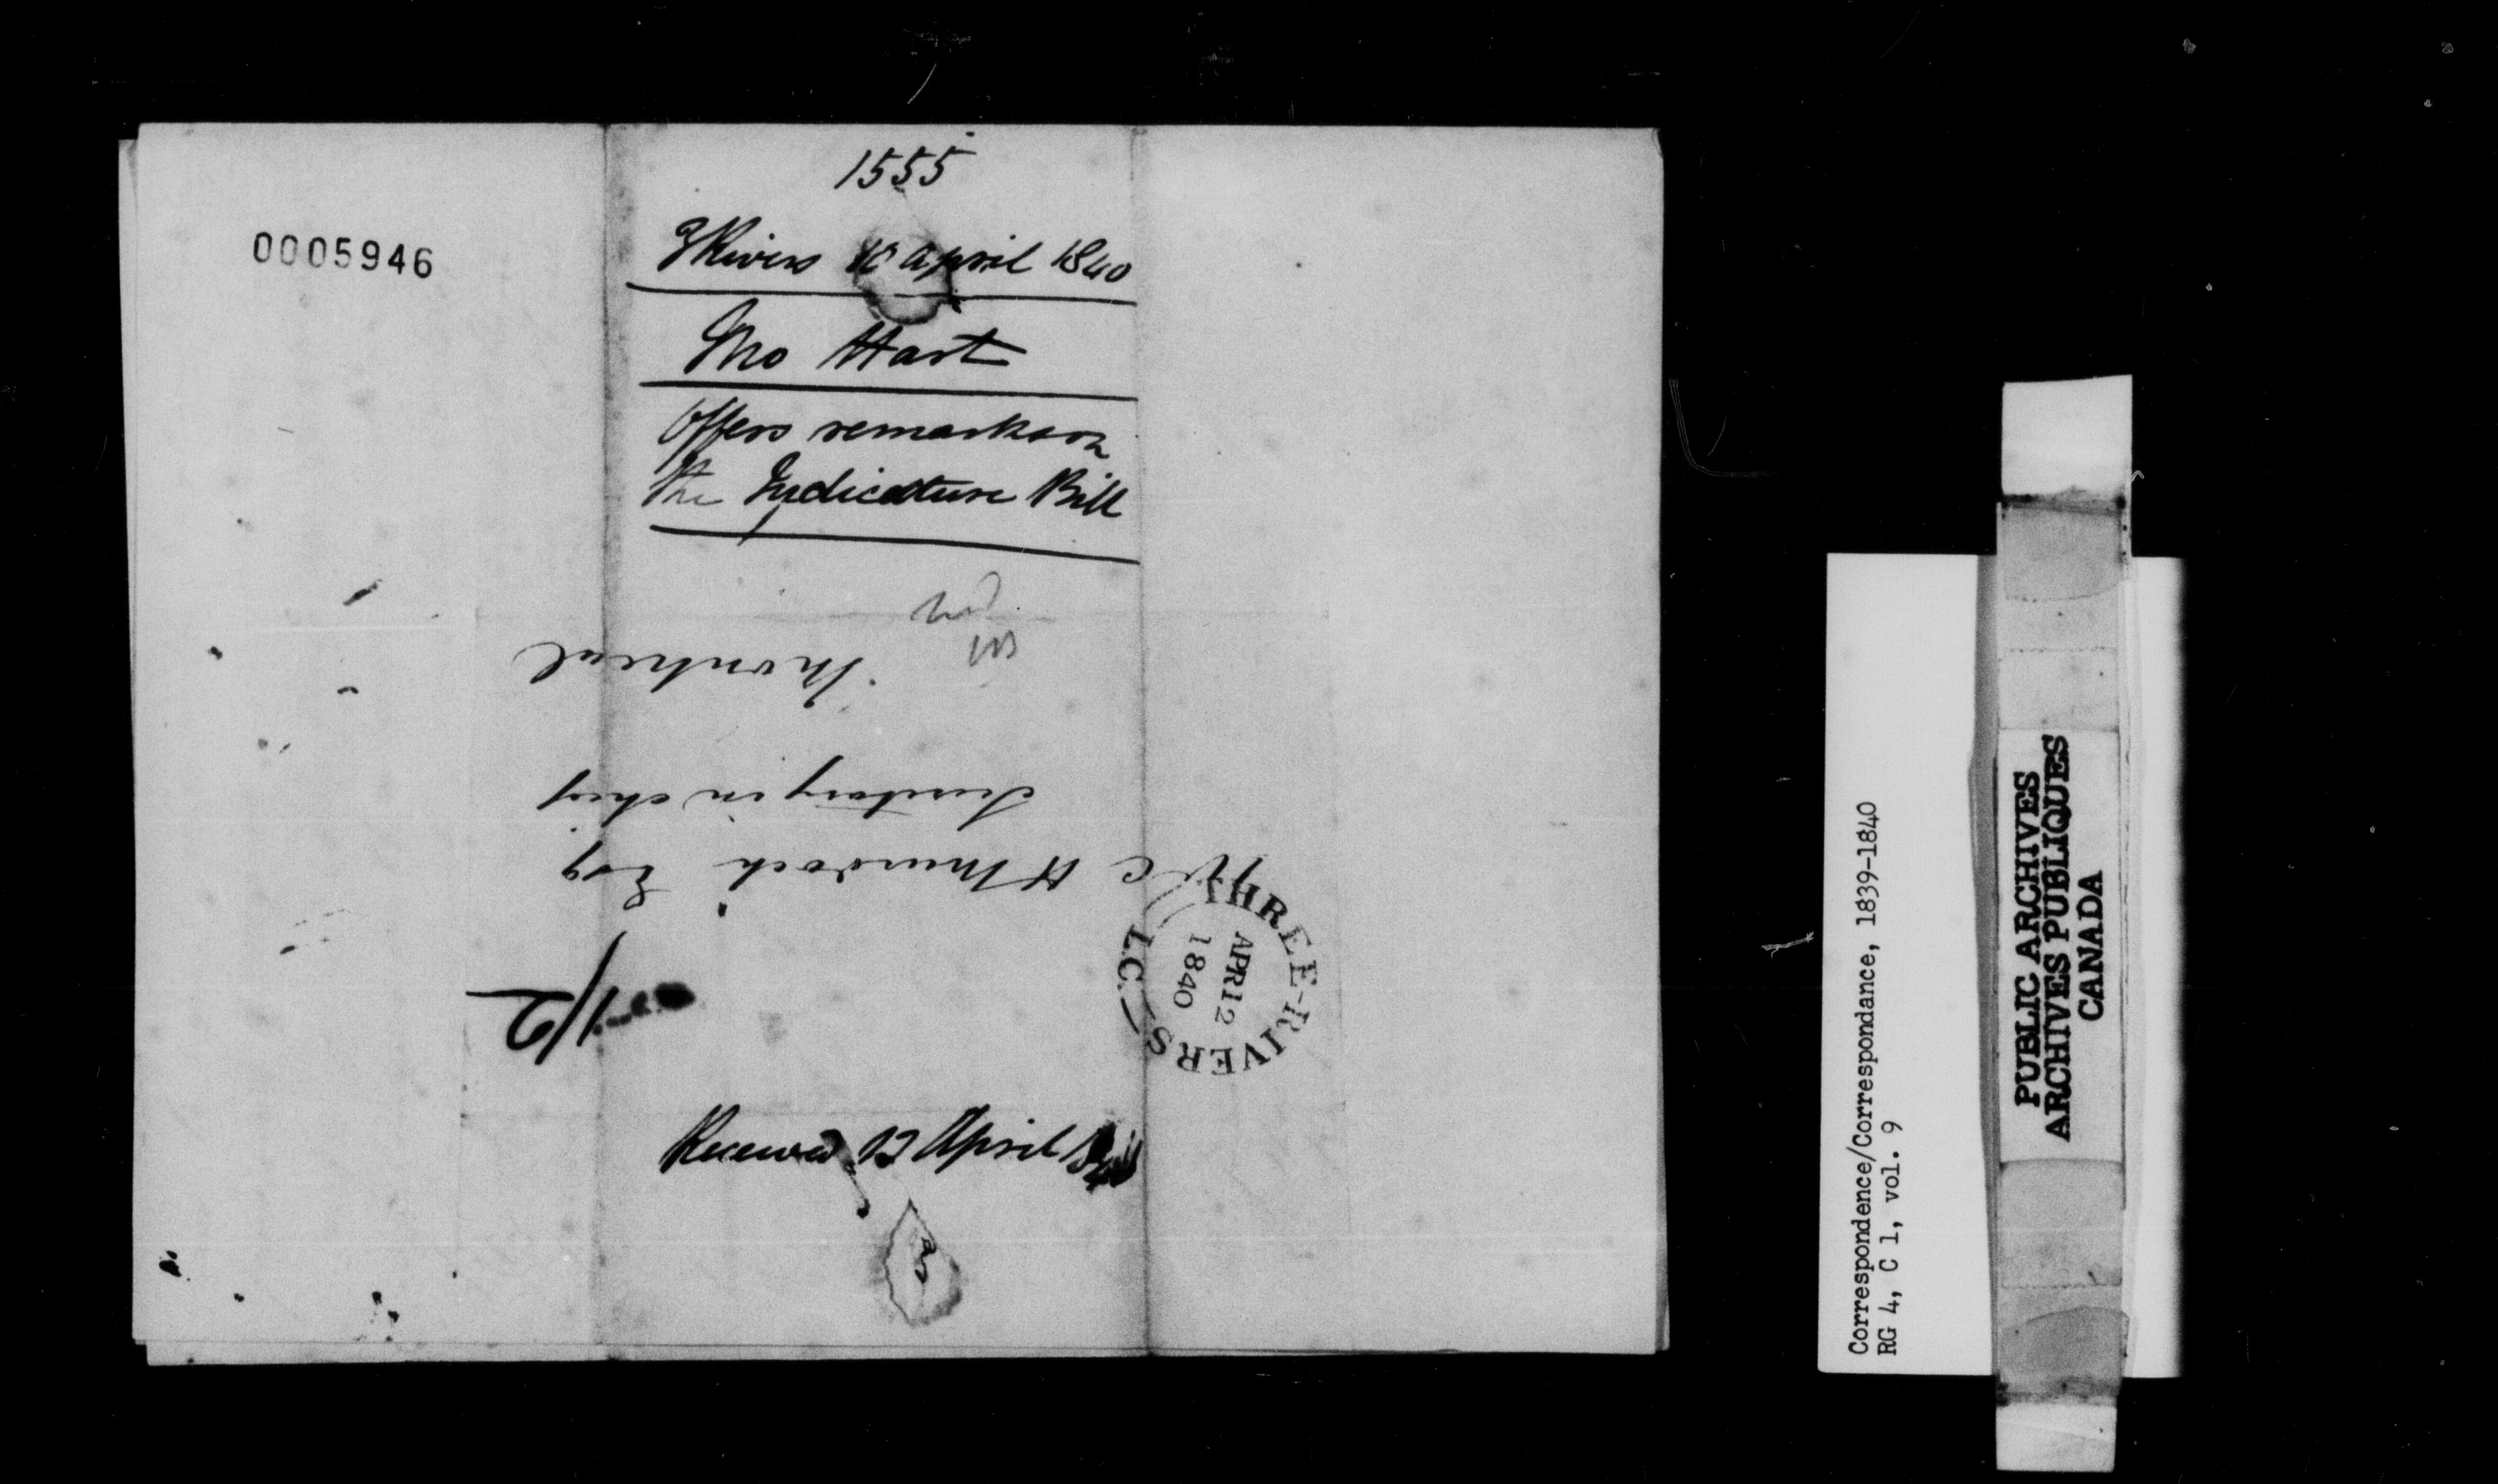 1555
0005946
3 Rivers 10 April 1840
Mo Hart
Offers remarks on
the Judicature Bill
Montreal
Secretary in chief
T W C Murdoch Esq
1/2
THREE-RIVERS L.C.
APR 12
1840
Received 13 April 1840
Correspondence/Correspondance, 1839-1840
RG 4, C 1, vol. 9
PUBLIC ARCHIVES
ARCHIVES PUBLIQUES
CANADA